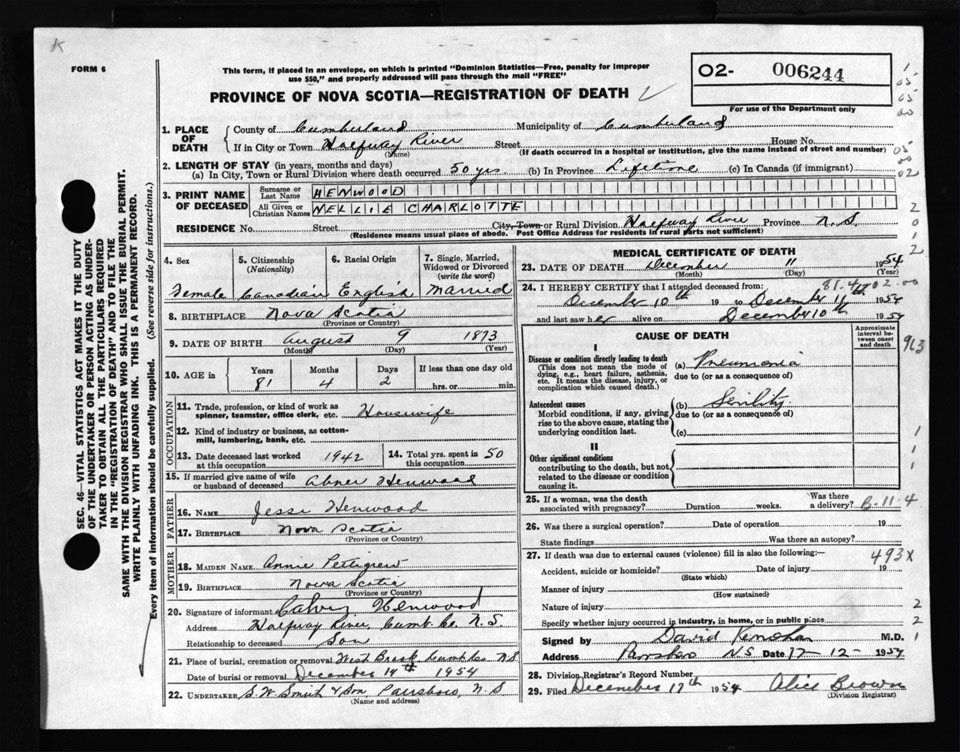 K
FORM 6
This form, if placed in an envelope, on which is printed "Dominion Statistics—Free, penalty for improper
use $50," and properly addressed will pass through the mail "FREE"
PROVINCE OF NOVA SCOTIA—REGISTRATION OF DEATH
O2- 006244
For use of the Department only
1. PLACE OF DEATH
County of Cumberland Municipality of Cumberland
If in City or Town Halfway River Street House No.
(Name) (If death occurred in a hospital or institution, give the name instead of street and number)
2. LENGTH OF STAY (in years, months and days)
(a) In City, Town or Rural Division where death occurred 50 yrs. (b) In Province Lifetime (c) In Canada (if immigrant)
3. PRINT NAME OF DECEASED
Surname or Last Name HENWOOD
All Given or Christian Names NELLIE CHARLOTTE
RESIDENCE No. Street City, Town or Rural Division Halfway River Province N.S.
(Residence means usual place of abode. Post Office Address for residents in rural parts not sufficient)
4. Sex
Female
5. Citizenship (Nationality)
Canadian
6. Racial Origin
English
7. Single, Married, Widowed or Divorced (write the word)
Married
8. BIRTHPLACE Nova Scotia
(Province or Country)
9. DATE OF BIRTH August 9 1873
(Month) (Day) (Year)
10. AGE in Years Months Days If less than one day
81 4 2 hrs. or min.
OCCUPATION
11. Trade, profession, or kind of work as spinner, teamster, office clerk, etc. Housewife
12. Kind of industry or business, as cotton-mill, lumbering, bank, etc.
13. Date deceased last worked at this occupation 1942
14. Total yrs. spent in this occupation 50
15. If married give name of wife or husband of deceased Abner Henwood
FATHER
16. NAME Jesse Henwood
17. BIRTHPLACE Nova Scotia
(Province or Country)
MOTHER
18. MAIDEN NAME Annie Pettigrew
19. BIRTHPLACE Nova Scotia
(Province or Country)
20. Signature of informant Henwood
Address Halfway River, Cumb. Co. N.S.
Relationship to deceased Son
21. Place of burial, cremation or removal West Brook Cumb Co. N S
Date of burial or removal December 14th 1954
22. UNDERTAKER S. W. Smith & Son, Parrsboro, N. S
(Name and address)
MEDICAL CERTIFICATE OF DEATH
23. DATE OF DEATH December 11 1954
(Month) (Day) (Year)
81.4.02.00
24. I HEREBY CERTIFY that I attended deceased from:
December 10th 19 to December 11 1954
and last saw her alive on December 10th 1954
CAUSE OF DEATH
Approximate interval between onset and death
I
Disease or condition directly leading to death
(This does not mean the mode of dying, e.g., heart failure, asthenia, etc. It means the disease, injury, or complication which caused death.)
(a) Pneumonia
due to (or as a consequence of)
Antecedent causes
Morbid conditions, if any, giving rise to the above cause, stating the underlying condition last.
(b) Senility
due to (or as a consequence of)
(c)
II
Other significant conditions
contributing to the death, but not related to the disease or condition causing it.
25. If a woman, was the death associated with pregnancy? Duration weeks. Was there a delivery? B-11.4
26. Was there a surgical operation? Date of operation 19
State findings Was there an autopsy?
27. If death was due to external causes (violence) fill in also the following:— 493X
Accident, suicide or homicide? Date of injury 19
(State which)
Manner of injury
(How sustained)
Nature of injury
Specify whether injury occurred in industry, in home, or in public place
Signed by David M.D.
Address Parrsboro N.S Date 17-12- 1954
28. Division Registrar's Record Number
29. Filed December 17th 1954 Alice Brown
(Division Registrar)
SEC. 46—VITAL STATISTICS ACT MAKES IT THE DUTY
OF THE UNDERTAKER OR PERSON ACTING AS UNDER-
TAKER TO OBTAIN ALL THE PARTICULARS REQUIRED
IN THE "REGISTRATION OF DEATH" AND TO FILE THE
SAME WITH THE DIVISION REGISTRAR WHO SHALL ISSUE THE BURIAL PERMIT.
WRITE PLAINLY WITH UNFADING INK. THIS IS A PERMANENT RECORD.
Every item of information should be carefully supplied. (See reverse side for instructions.)